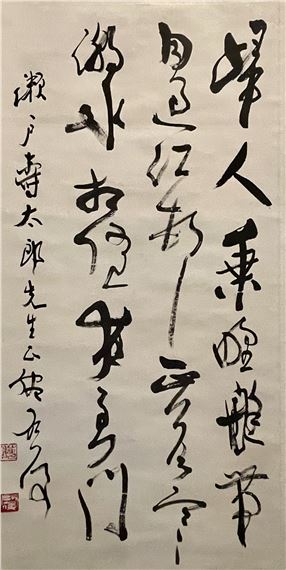 歸人乘野艇帶
月過江村正落寒
潮水相隨夜到門
瀬戸壽太郎先生正